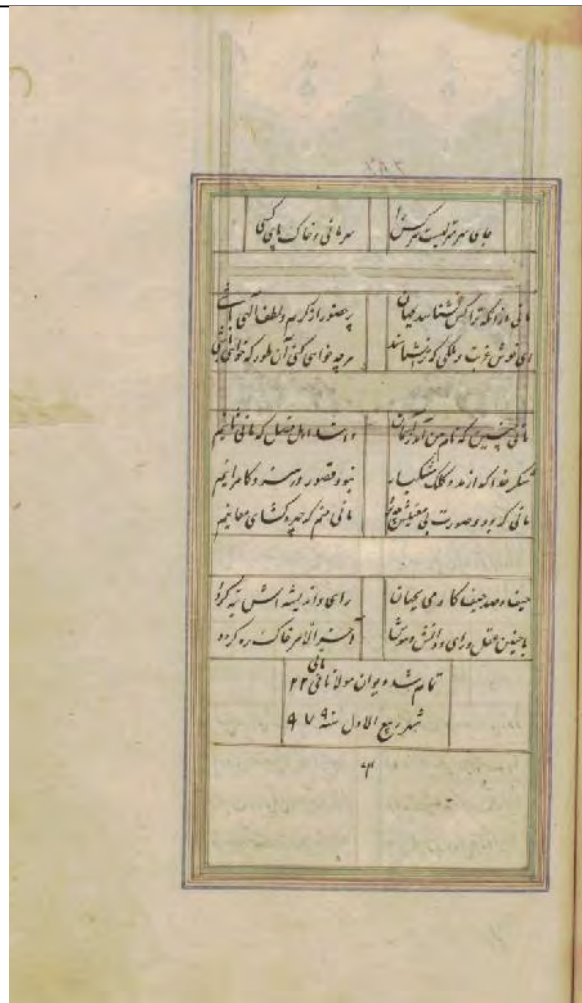 جای سر هر کس را سر مانی و خاک پای کسی
مانی ترا کس نشناسد بجهان پر حضور از کرم و لطف الهی باشی
ای خوش غربت و ملکی که هر چه خواهی کنی آن طور که خواهی باشی
مانی که نام من آمد دانند اهل فضل که مانی
شکر خدا که از مدد کلک مشکسا نبود قصور در هنر و کامرانیم
مانی که بود صورت بی معنیش مانی منم که چهره کشای معانیم
حیف و صد حیف کادمی بجهان رای و اندیشه اش تبه کردد
با چنین عقل و رای و دانش و هوش آخر الامر خاک ره کردد
تمام شد دیوان مولانا مانی ۲۲
شهر ربیع الاول سنه ۹۷۹